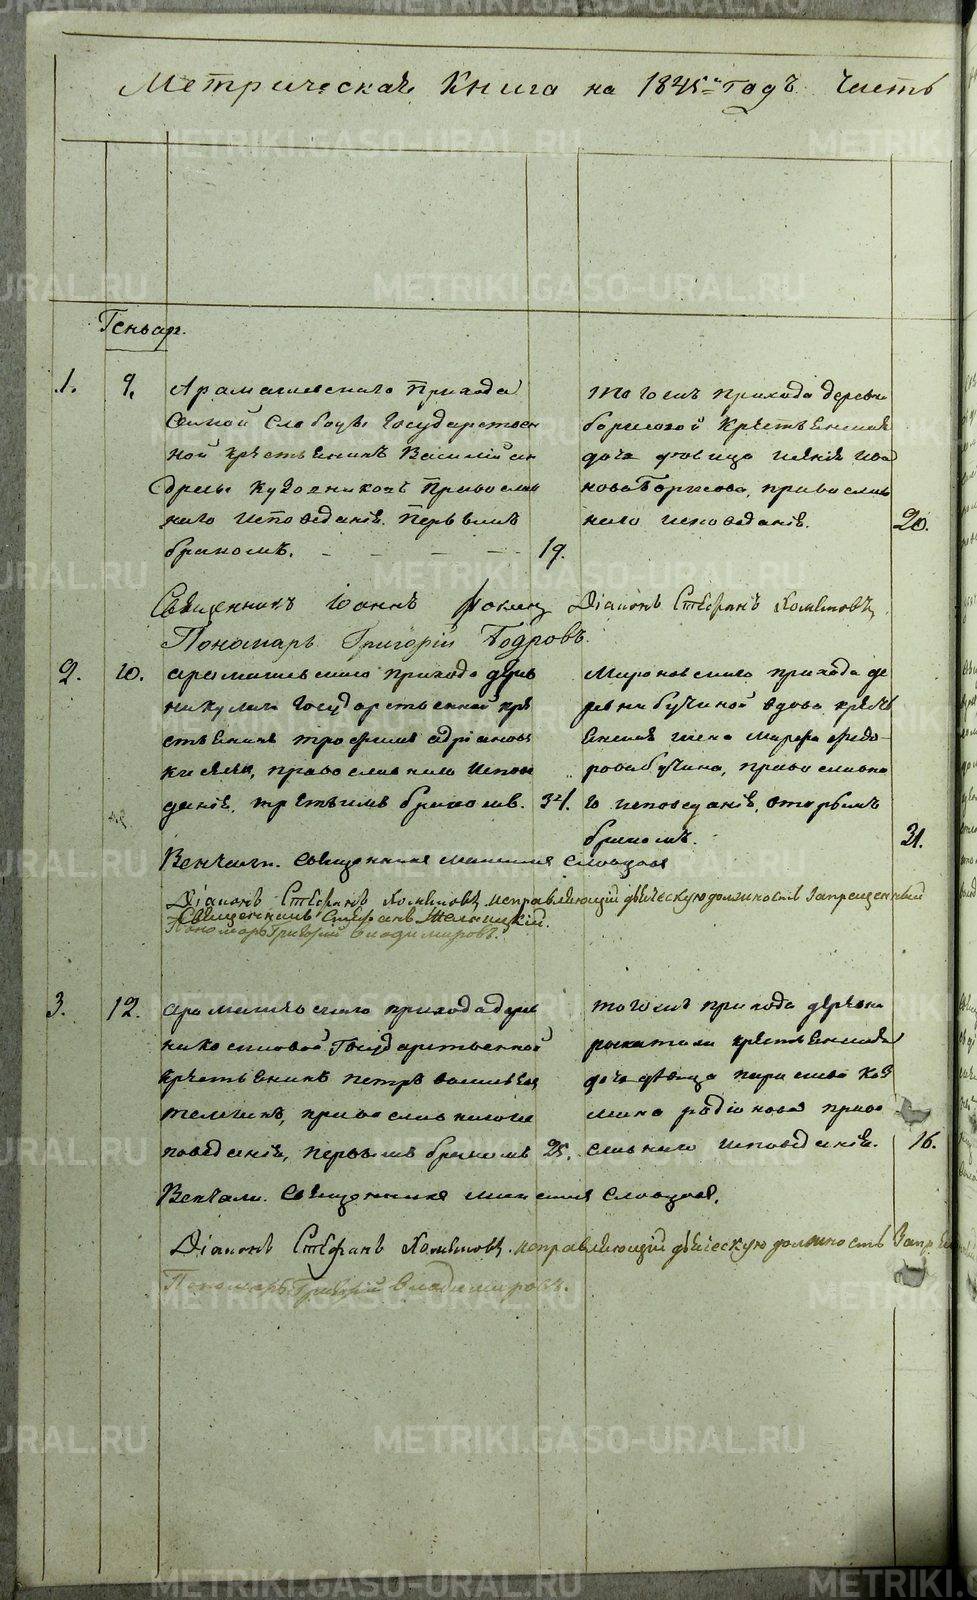 Метрическая Книга на 1845й годъ Часть
Генварь.
1. 9. Арамашевскаго Прихода
самой Слободы Государствен
ной крестьянинъ Василий Ан
Православ
наго исповеданія. Первымъ
бракомъ. 19.
того жъ прихода деревни
Борисовой Крестьянская
дочь девица Ива
нова Борисова, православ
наго исповеданія. 20.
Священникъ Іоаннъ
Діаконъ Стефанъ Холмовъ
Пономарь Григорій
2. 10. Арамашевскаго прихода дерев
ни Кулиги Государственной кре
стьянинъ Трофимъ Адріановъ
Киселевъ, православнаго испове
данія, третьимъ бракомъ. 34.
Мироновскаго прихода де
ревни Бучиной вдова кресть
янская жена Марфа Федо-
рова Бучина, православна
го исповеданія, вторымъ
бракомъ. 31.
Венчали. Священникъ Словцовъ
Діаконъ Стефанъ Холмовъ, исправляющій дьяческую должность Запрещенный
Священникъ Стефанъ
Пономарь Григорій Владимировъ.
3. 12. Арамашевскаго прихода дерев
ни Косиковой Государственной
крестьянинъ Петръ Васильевъ
Телегинъ, православнаго ис
поведанія, первымъ бракомъ 25.
того жъ прихода деревни
крестьянская
дочь девица Параскева Коз
мина Радіонова право
славнаго исповеданія. 16.
Венчали. Священникъ Словцовъ,
Діаконъ Стефанъ Холмовъ, исправляющій дьяческую должность
Пономарь Григорій Владимировъ.
METRIKI.GASO-URAL.RU